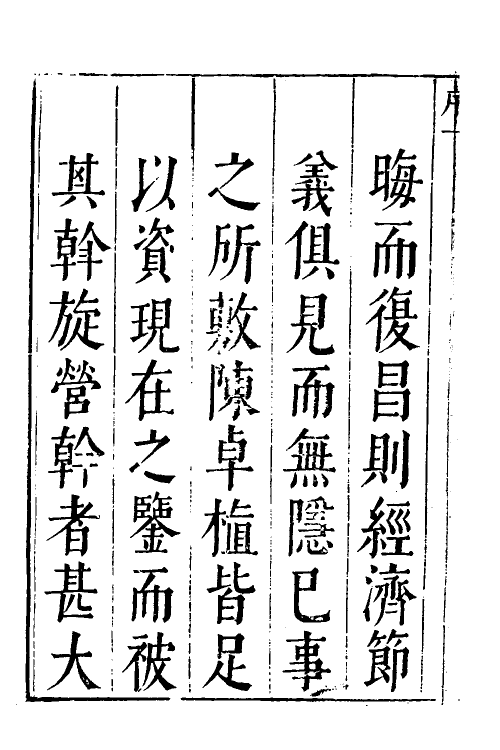 序一
晦而復昌則經濟節
義俱見而無隱已事
之所敷陳卓植皆足
以資現在之鑒而被
其斡旋營幹者甚大